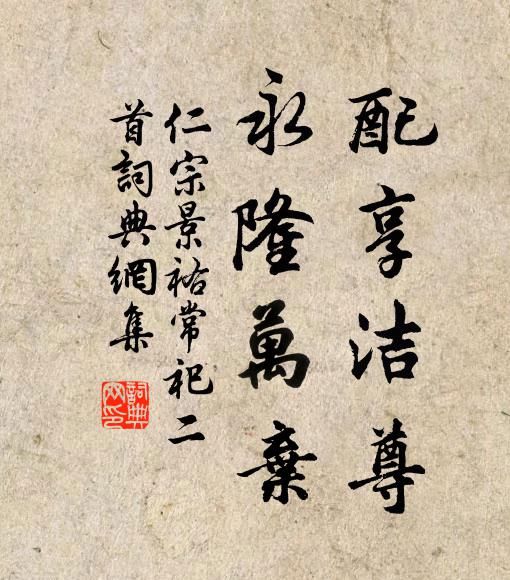 配享洁尊
永隆萬棄
仁宗景祐常祀二
首詞典網集
詞典
网印